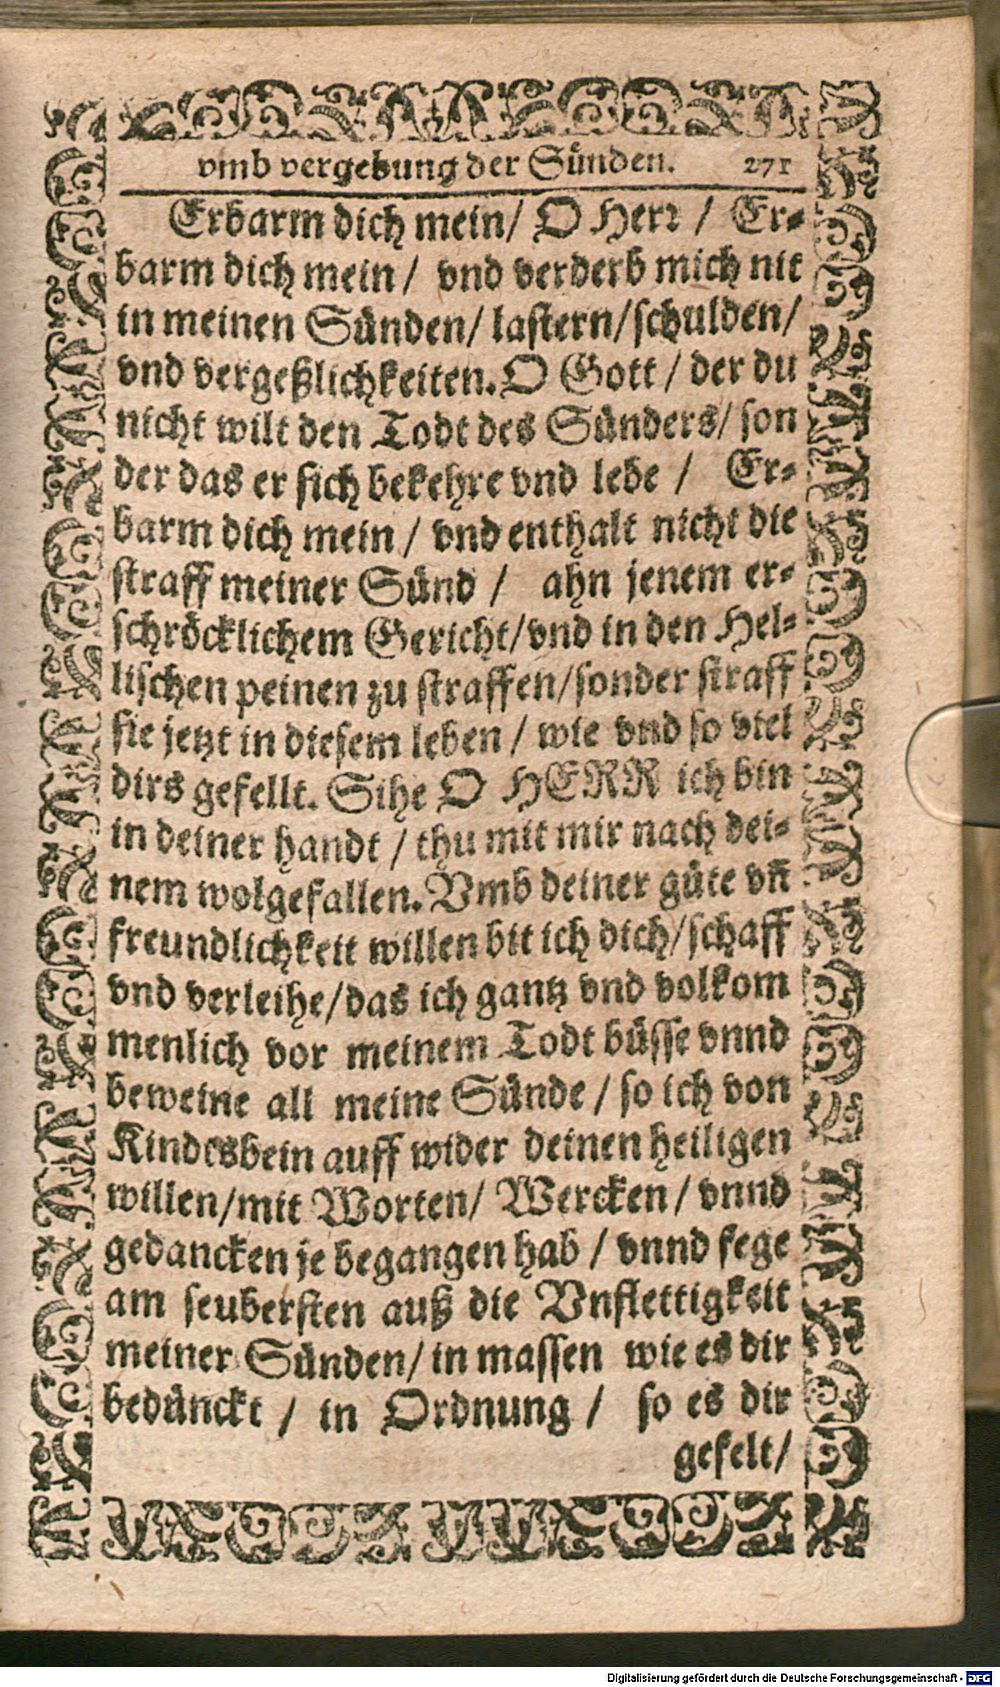 vmb vergebung der Sünden. 271
Erbarm dich mein/ O Herr / Er-
barm dich mein / vnd verderb mich nit
in meinen Sünden/ lastern/schulden/
vnd vergeßlichkeiten. O Gott / der du
nicht wilt den Todt des Sünders/ son
der das er sich bekehre vnd lebe / Er-
barm dich mein / vnd enthalt nicht die
straff meiner Sünd / ahn jenem er-
schröcklichem Gericht/vnd in den Hel-
lischen peinen zu straffen/sonder straff
sie jetzt in diesem leben / wie vnd so viel
dirs gefellt. Sihe O HERR ich bin
in deiner handt / thu mit mir nach dei-
nem wolgefallen. Vmb deiner güte vn̄
freundlichkeit willen bit ich dich/schaff
vnd verleihe/das ich gantz vnd volkom
menlich vor meinem Todt büsse vnnd
beweine all meine Sünde / so ich von
Kindesbein auff wider deinen heiligen
willen/mit Worten/ Wercken / vnnd
gedancken je begangen hab / vnnd fege
am seubersten auß die Vnflettigkeit
meiner Sünden/ in massen wie es dir
bedünckt / in Ordnung / so es dir
gefelt/
Digitalisierung gefördert durch die Deutsche Forschungsgemeinschaft - DFG